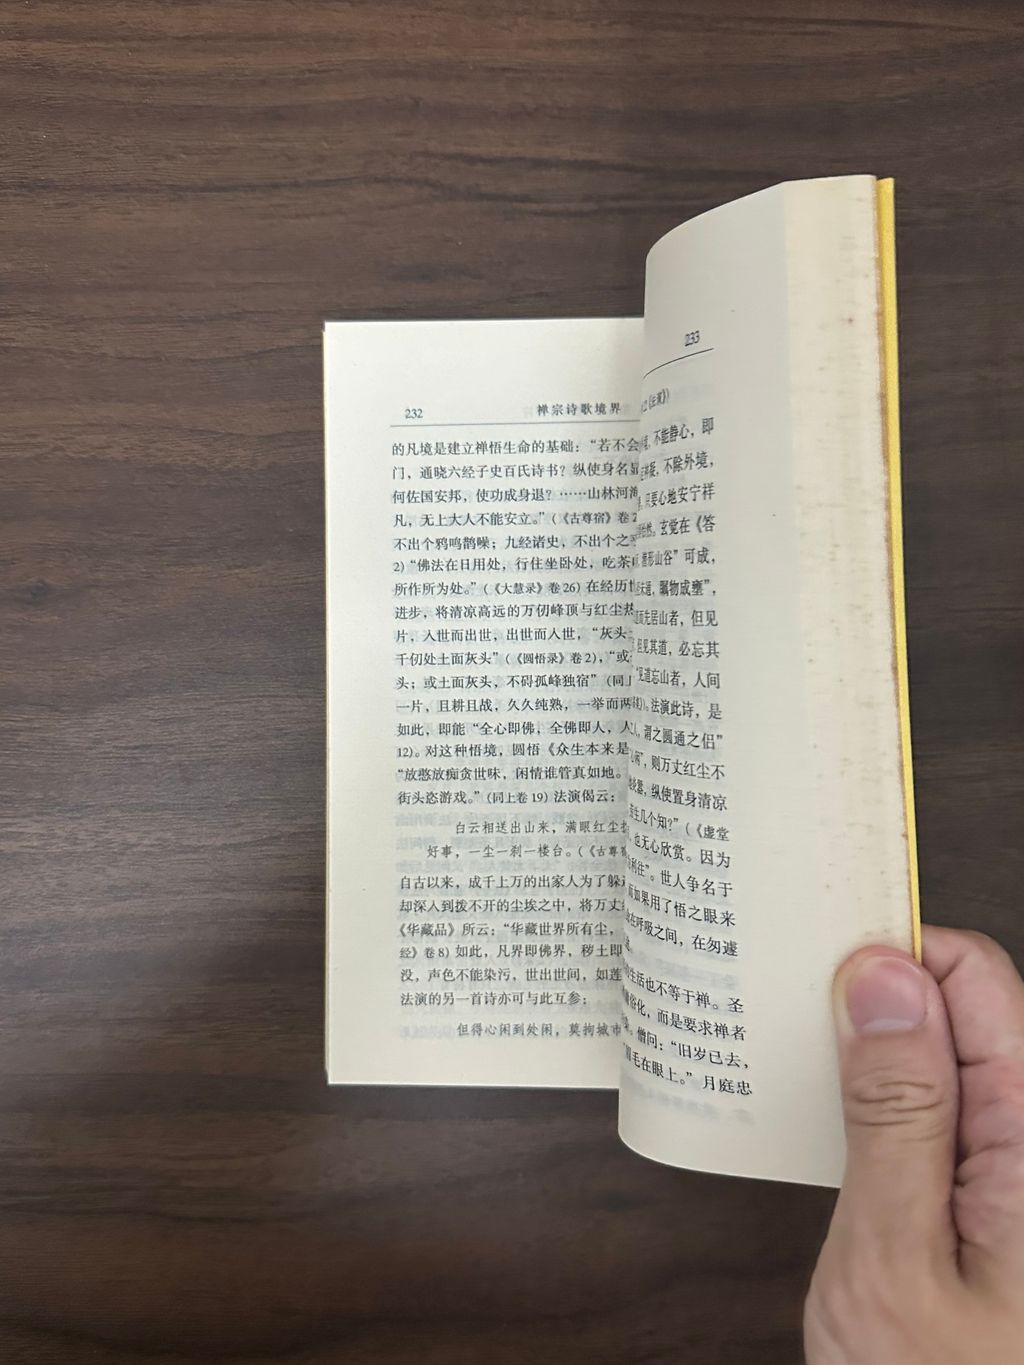 232 禅宗诗歌境界
的凡境是建立禅悟生命的基础：“若不会
门，通晓六经子史百氏诗书？纵使身名显
何佐国安邦，使功成身退？……山林河海
凡，无上大人不能安立。”（《古尊宿》卷2
不出个鸦鸣鹊噪；九经诸史，不出个之
2）“佛法在日用处，行住坐卧处，吃茶
所作所为处。”（《大慧录》卷26）在经历
进步，将清凉高远的万仞峰顶与红尘热
片，入世而出世，出世而入世，“灰头
千仞处土面灰头”（《圆悟录》卷2），“或
头；或土面灰头，不碍孤峰独宿”（同
一片，且耕且战，久久纯熟，一举而两
如此，即能“全心即佛，全佛即人，人
12）。对这种悟境，圆悟《众生本来是
“放憨放痴贪世味，闲情谁管真如地。
街头恣游戏。”（同上卷19）法演偈云：
白云相送出山来，满眼红尘
好事，一尘一刹一楼台。（《古尊宿
自古以来，成千上万的出家人为了躲
却深入到拨不开的尘埃之中，将万丈
《华藏品》所云：“华藏世界所有尘，
经》卷8）如此，凡界即佛界，秽土即
没，声色不能染污，世出世间，如莲
法演的另一首诗亦可与此互参：
但得心闲到处闲，莫拘城市
233
不能静心，即
不除外境，
只要心地安宁祥
玄觉在《答
形山谷”可成，
瞩物成壅”，
先居山者，但见
但见其道，必忘其
见道忘山者，人间
法演此诗，是
谓之圆通之侣”
则万丈红尘不
纵使置身清凉
生几个知？”（《虚堂
也无心欣赏。因为
利往”。世人争名于
如果用了悟之眼来
在呼吸之间，在匆遽
生活也不等于禅。圣
俗化，而是要求禅者
僧问：“旧岁已去，
眉毛在眼上。”月庭忠